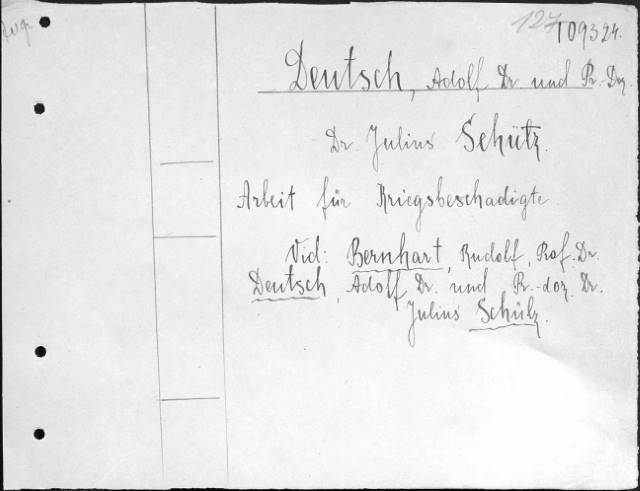 Aug.
127
109324.
Deutsch, Adolf Dr und Pr.-Doz.
Dr. Julius Schütz.
Arbeit für Kriegsbeschadigte
Vid: Bernhart, Rudolf, Prof. Dr.
Deutsch, Adolf Dr. und Pr.-doz. Dr.
Julius Schülz.